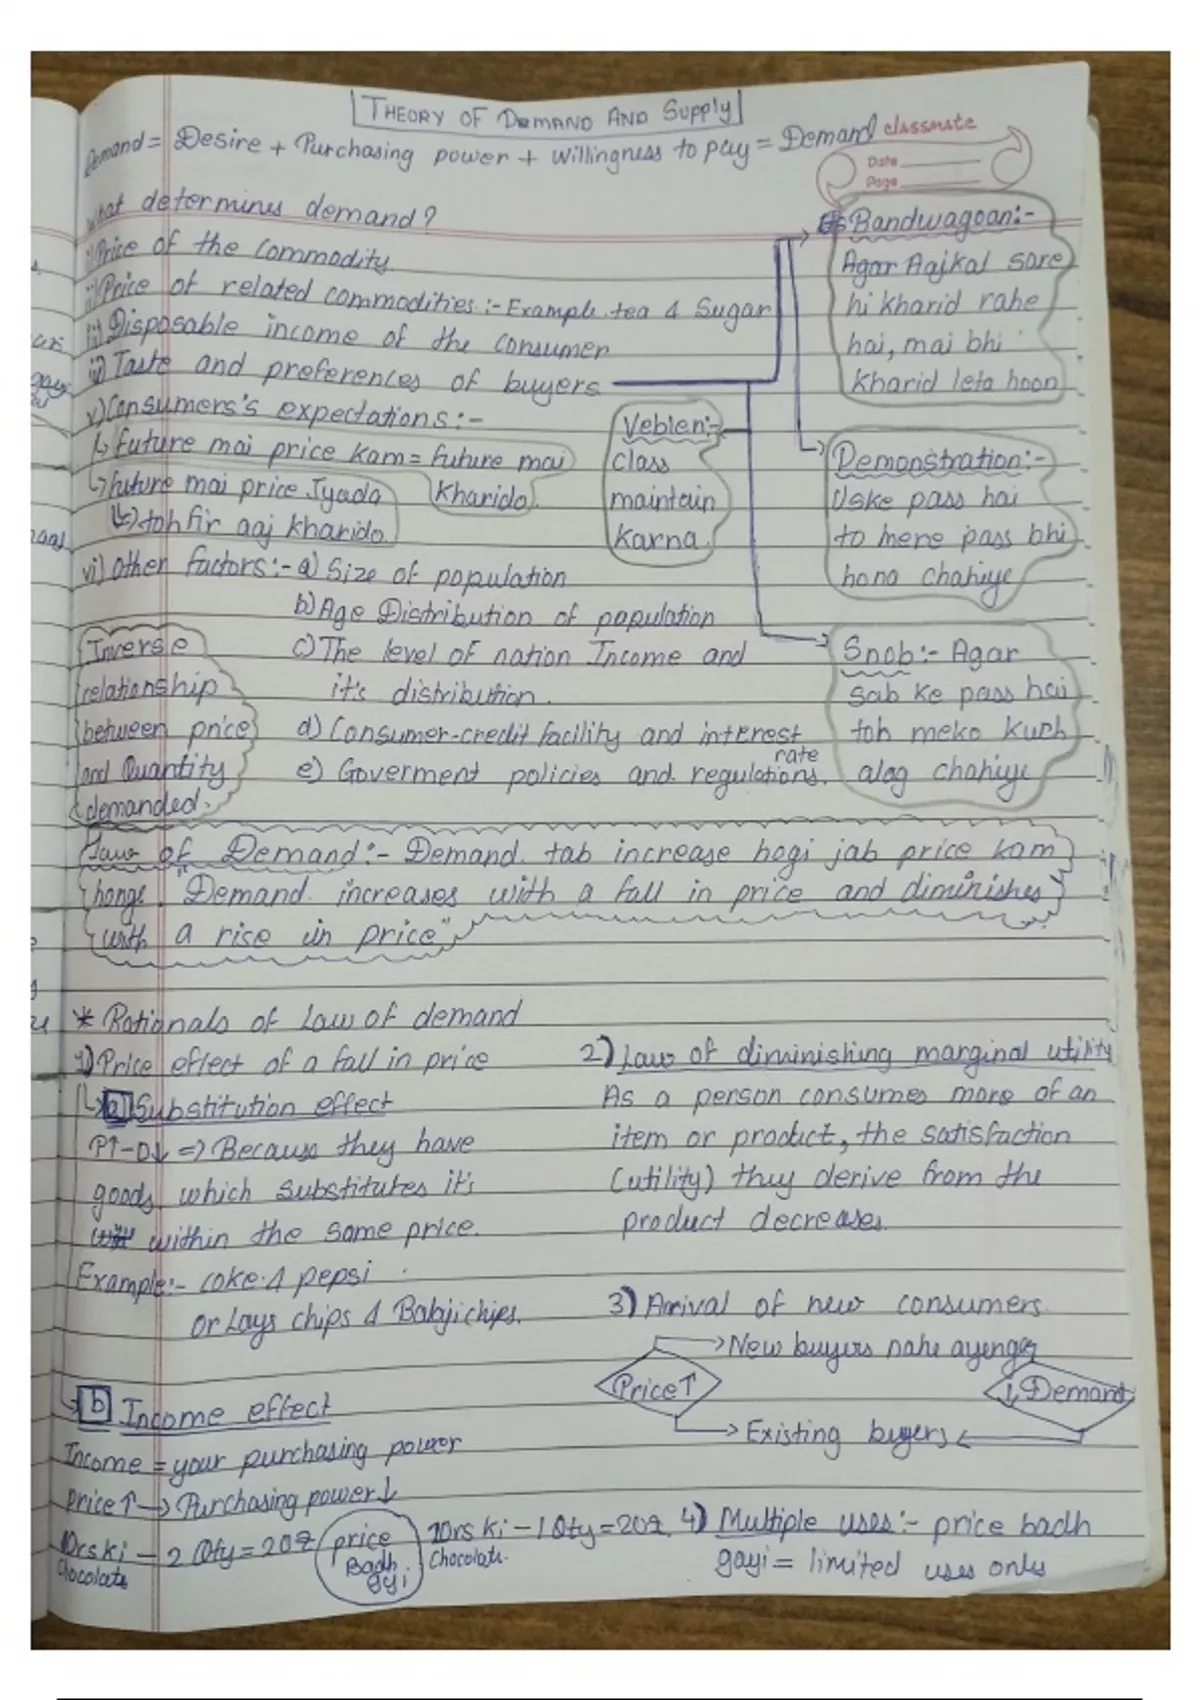 THEORY OF DEMAND AND Supply
Demand = Desire + Purchasing power + willingness to pay = Demand
classmate
Date
Page
What determines demand?
i) Price of the Commodity
ii) Price of related commodities :- Example tea & Sugar
iii) Disposable income of the consumer
iv) Taste and preferences of buyers
v) Consumers's expectations :-
↳ future mai price kam = future mai
Kharido
↳ future mai price Jyada
↳ toh fir aaj kharido.
vi) Other factors :- a) Size of population
b) Age Distribution of population
c) The level of nation Income and
it's distribution.
d) Consumer-credit facility and interest
rate
e) Goverment policies and regulations.
Bandwagoan :-
Agar Aajkal sare
hi kharid rahe
hai, mai bhi
kharid leta hoon
Veblen :-
class
maintain
karna.
Demonstration :-
Uske pass hai
to mere pass bhi
hona chahiye
Snob :- Agar
sab ke pass hai
toh meko kuch
alag chahiye
Inverse
relationship
between price
and Quantity
demanded.
Law of Demand :- Demand tab increase hogi jab price kam
honge. "Demand increases with a fall in price and diminishes
with a rise in price"
* Rationals of Law of demand
1) Price effect of a fall in price
↳ a) Substitution effect
P↑ - D↓ => Because they have
goods which substitutes it's
within the same price.
Example :- coke & pepsi
or Lays chips & Balaji chips.
↳ b Income effect
Income = your purchasing power
price ↑ → Purchasing power ↓
10rs ki - 2 Qty = 20
Chocolate
price
Badh
gyi
- 1 Qty = 20
Chocolate.
2) Law of diminishing marginal utility
As a person consumes more of an
item or product, the satisfaction
(utility) they derive from the
product decreases.
3) Arrival of new consumers
→ New buyers nahe ayenge
Price ↑
↓ Demand
→ Existing buyers ←
4) Multiple uses :- price badh
gayi = limited uses only